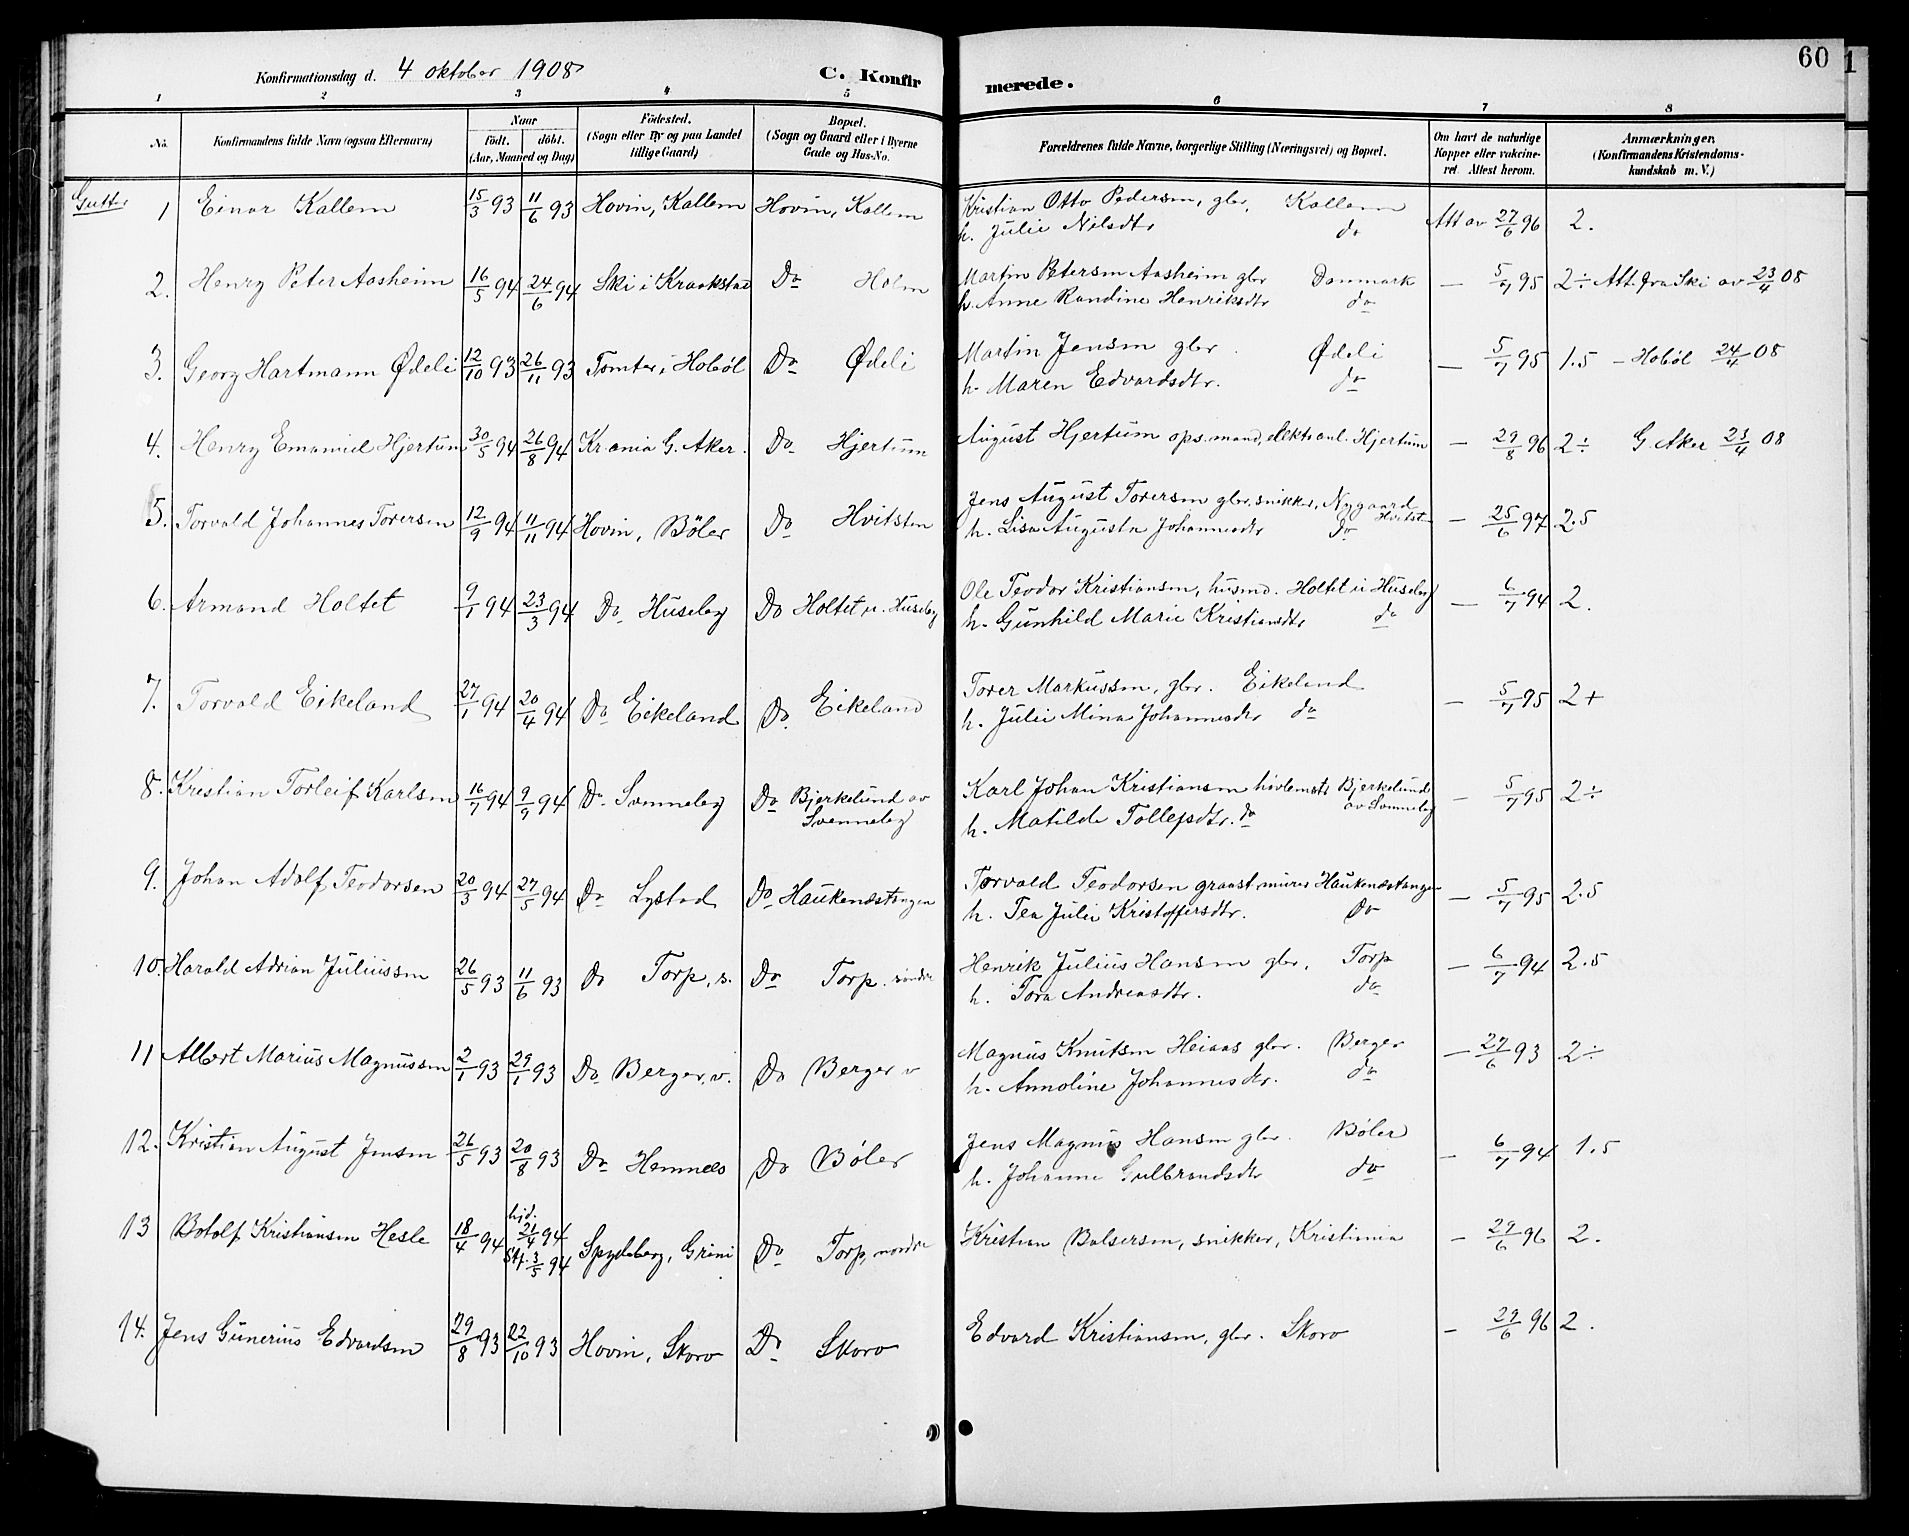 60
Konfirmationsdag d. 4 oktober 1908 C. Konfirmerede.
1 2 3 4 5 6 7 8
No. Konfirmandens fulde Navn (ogsaa Efternavn)
Naar
født. døbt.
(Aar, Maaned og Dag)
Fødested.
(Sogn eller By og paa Landet
tillige Gaard)
Bopæl.
(Sogn og Gaard eller i Byerne
Gade og Hus-No.
Forældrenes fulde Navne, borgerlige Stilling (Næringsvei) og Bopæl.
Om havt de naturlige
Kopper eller vakcine-
ret. Attest herom.
Anmærkninger.
(Konfirmandens Kristendoms-
kundskab m. V.)
Gutter
1 Einar Kallem 15/3 93 11/6 93 Hovin, Kallem Hovin, Kallem Kristian Otto Pedersen, gbr. Kallem Att av 27/6 96 2.
h. Julie Nilsdtr do
2. Henry Peter Aasheim 16/5 94 24/6 94 Ski i Kraakstad Do Holm Martin Petersen Aasheim gbr Danmark — 5/7 95 2÷ Att. fra Ski av 23/4 08
h. Anne Randine Henriksdtr do
3. Georg Hartmann Ødeli 12/10 93 26/11 93 Tomter i Hobøl Do Ødeli Martin Jensen gbr. Ødeli — 5/7 95 1.5 — Hobøl 24/4 08
h. Maren Edvardsdtr. do
4. Henry Emanuel Hjertum 30/5 94 26/8 94 Kr.ania G. Aker. Do Hjertum August Hjertum ops.mand, elektr.anl. Hjertum — 29/8 96 2÷ G. Aker 23/4 08
5. Torvald Johannes Torersen 12/9 94 11/11 94 Hovin, Bøler Do Hvitsten Jens August Torersen gbr, snikker, Nygaard — 25/6 97 2.5
Hvitst
h. Lisa Augusta Johannesdtr do
6. Armand Holtet 9/1 94 23/3 94 Do Huseby Do Holtet u. Huseby Ole Teodor Kristiansen, husmd. Holtet u Huseby — 6/7 94 2.
h. Gunhild Marie Kristiansdtr do
7. Torvald Eikeland 27/1 94 20/4 94 Do Eikeland Do Eikeland Torer Markussen, gbr. Eikeland — 5/7 95 2+
h. Julie Mina Johannesdtr do
8. Kristian Torleif Karlsen 16/7 94 9/9 94 Do Svenneby Do Bjerkelund av Svenneby Karl Johan Kristiansen høvlemstr Bjerkelund av Svenneby — 5/7 95 2÷
h. Matilde Tollefsdtr. do
9. Johan Adolf Teodorsen 20/3 94 27/5 94 Do Lystad Do Haukenæstangen Torvald Teodorsen graast.murer Haukenæstangen — 5/7 95 2.5
h. Tea Julie Kristoffersdtr. Do
10. Harald Adrian Juliussen 26/5 93 11/6 93 Do Torp, s. Do Torp søndre Henrik Julius Hansen gbr. Torp — 6/7 94 2.5
h. Tora Andreasdtr. do
11 Albert Marius Magnussen 2/1 93 29/1 93 Do Berger, v. Do Berger v Magnus Knutsen Heiaas gbr. Berger — 27/6 93 2÷
h. Annoline Johannesdtr. do
12. Kristian August Jensen 26/5 93 20/8 93 Do Hemnes Do Bøler Jens Magnus Hansen gbr. Bøler — 6/7 94 1.5
h. Johanne Gulbrandsdtr do
13 Botolf Kristiansen Hesle 18/4 94 hjd. 21/4 94 Stf. 3/5 94 Spydeberg, Grini Do Torp, nordre Kristian Balsersen, snikker, Kristiania — 29/6 96 2.
14. Jens Gunerius Edvardsen 29/8 93 22/10 93 Hovin, Skoro Do Skoro Edvard Kristiansen, gbr. Skoro — 29/6 96 2.